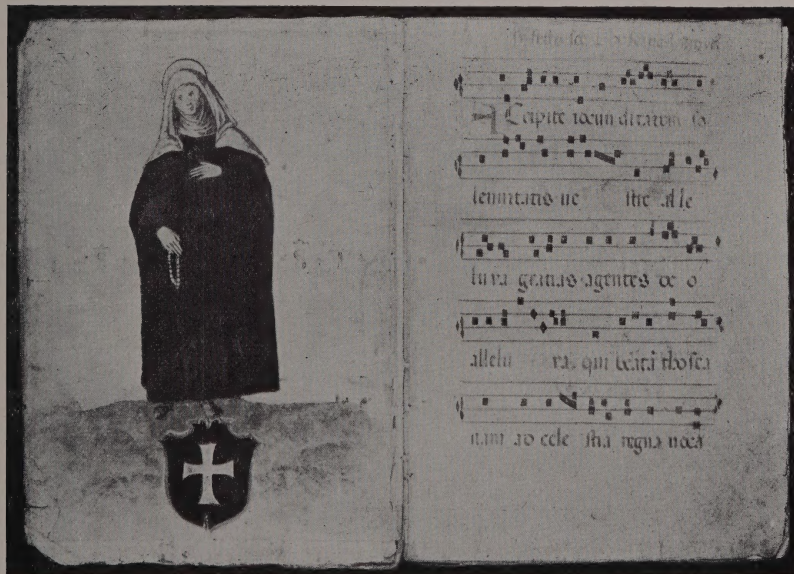 Accipite iocunditatem so
lemnitatis ve stre alle
luya gratias agentes de o
allelu ya qui beatā thosca
nam ad cele stia regna voca